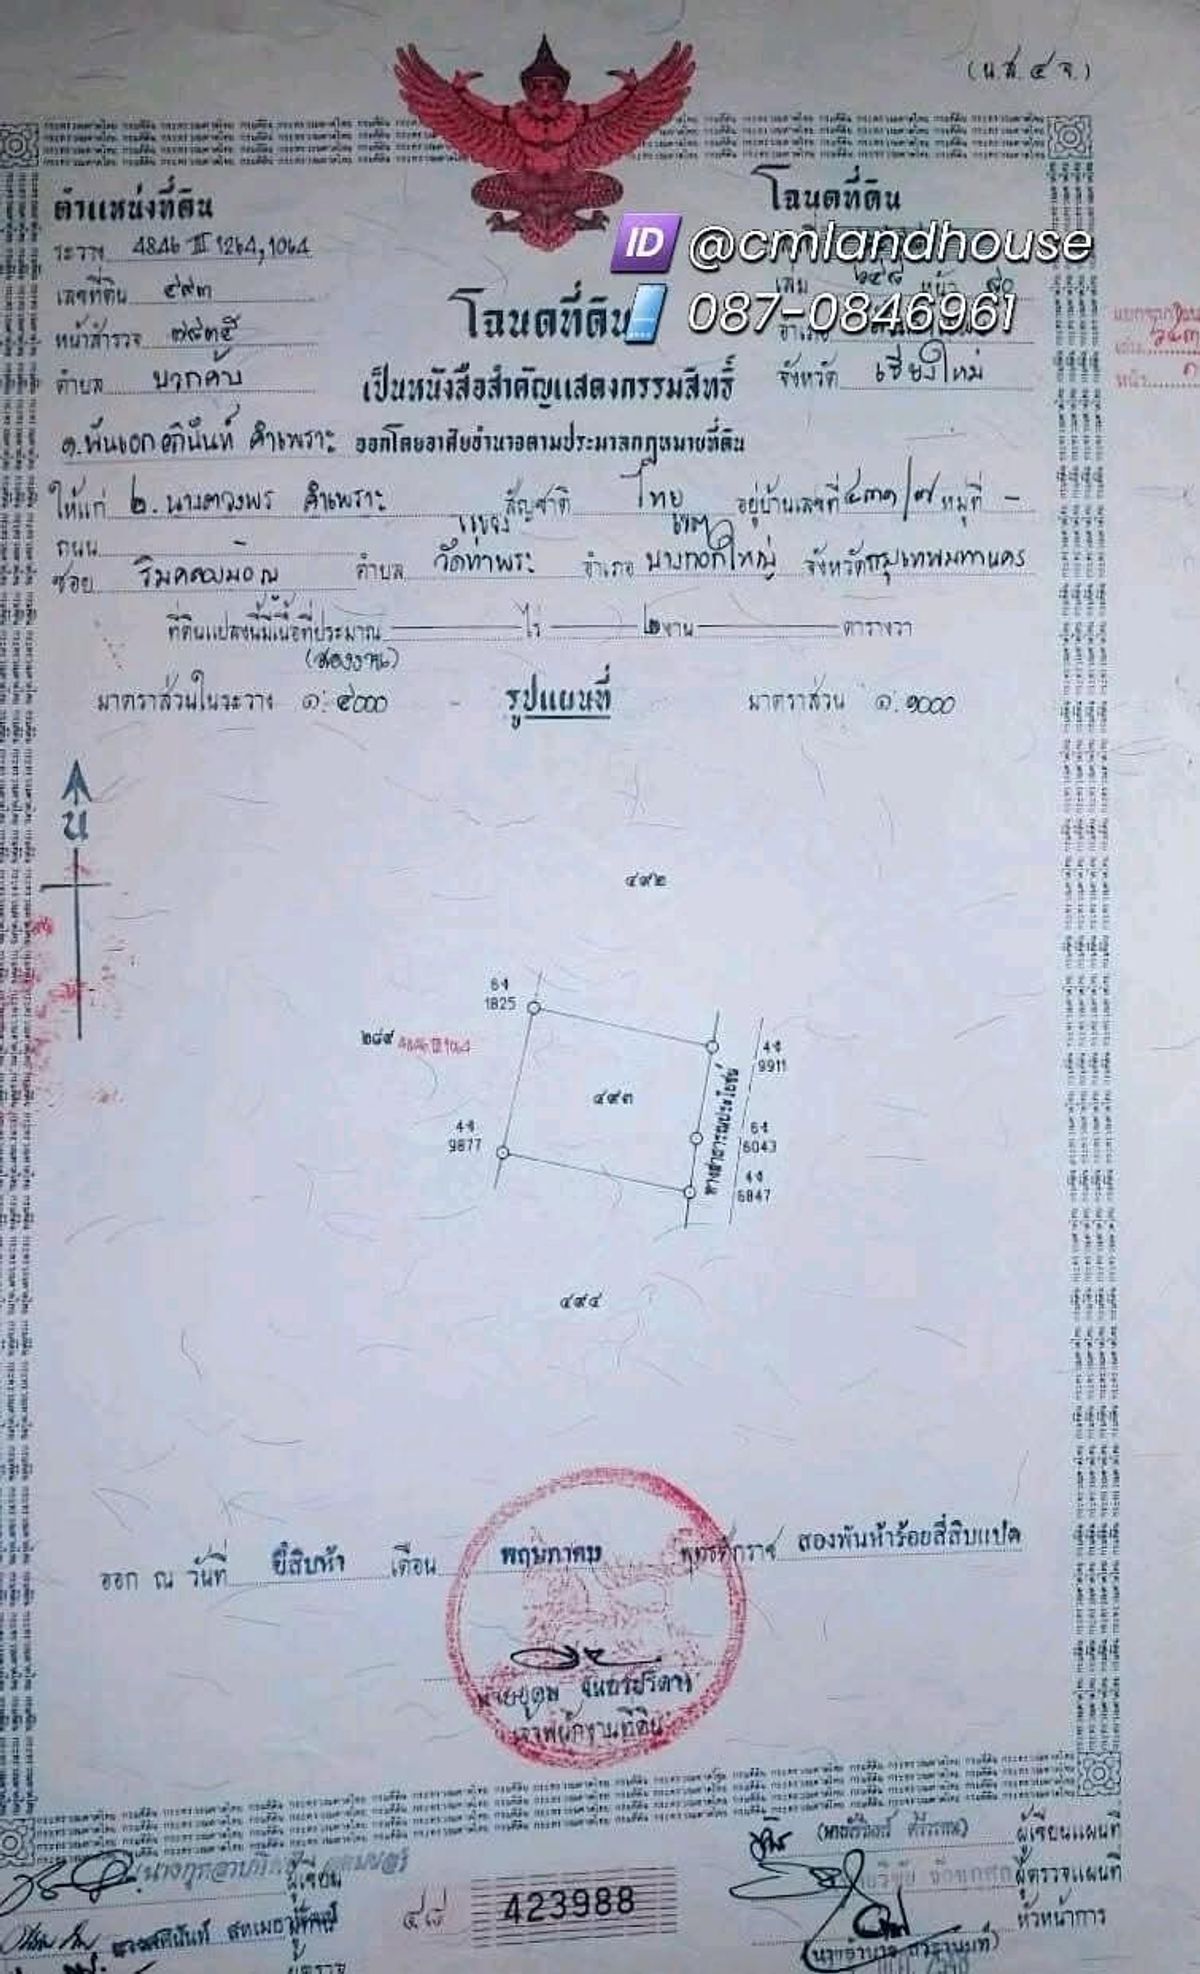 (น.ส. ๔ จ.)
ตำแหน่งที่ดิน
โฉนดที่ดิน
ระวาง 4846 III 1264,1064
ID @cmlandhouse
เลขที่ดิน ๔๙๓
เล่ม หน้า ๙๐
หน้าสำรวจ ๗๙๓๕
โฉนดที่ดิน
087-0846961
อำเภอ
ตำบล บวกค้าง
เป็นหนังสือสำคัญแสดงกรรมสิทธิ์
จังหวัด เชียงใหม่
๑. พันเอก อภินันท์ คำเพราะ ออกโดยอาศัยอำนาจตามประมวลกฎหมายที่ดิน
ให้แก่ ๒. นางดวงพร คำเพราะ สัญชาติ ไทย อยู่บ้านเลขที่ ๔๓๑/๗ หมู่ที่ -
ถนน - แขวง เขต
ซอย ริมคลองมอญ ตำบล วัดท่าพระ อำเภอ บางกอกใหญ่ จังหวัด กรุงเทพมหานคร
ที่ดินแปลงนี้มีเนื้อที่ประมาณ ไร่ ๒ งาน ตารางวา
(สองงาน)
มาตราส่วนในระวาง ๑:๔๐๐๐ รูปแผนที่ มาตราส่วน ๑:๑๐๐๐
น
๔๙๒
6จ
1825
๒๘๙ 4846 III 1064
4จ
9911
๔๙๓
ทางสาธารณประโยชน์
4จ
9877
6จ
6043
4จ
6847
๔๙๔
ออก ณ วันที่ ยี่สิบห้า เดือน พฤษภาคม พุทธศักราช สองพันห้าร้อยสี่สิบแปด
เจ้าพนักงานที่ดิน
ผู้เขียนแผนที่
ผู้เขียน
ผู้ตรวจแผนที่
๔๘ 423988
หัวหน้าการ
ผู้ตรวจ